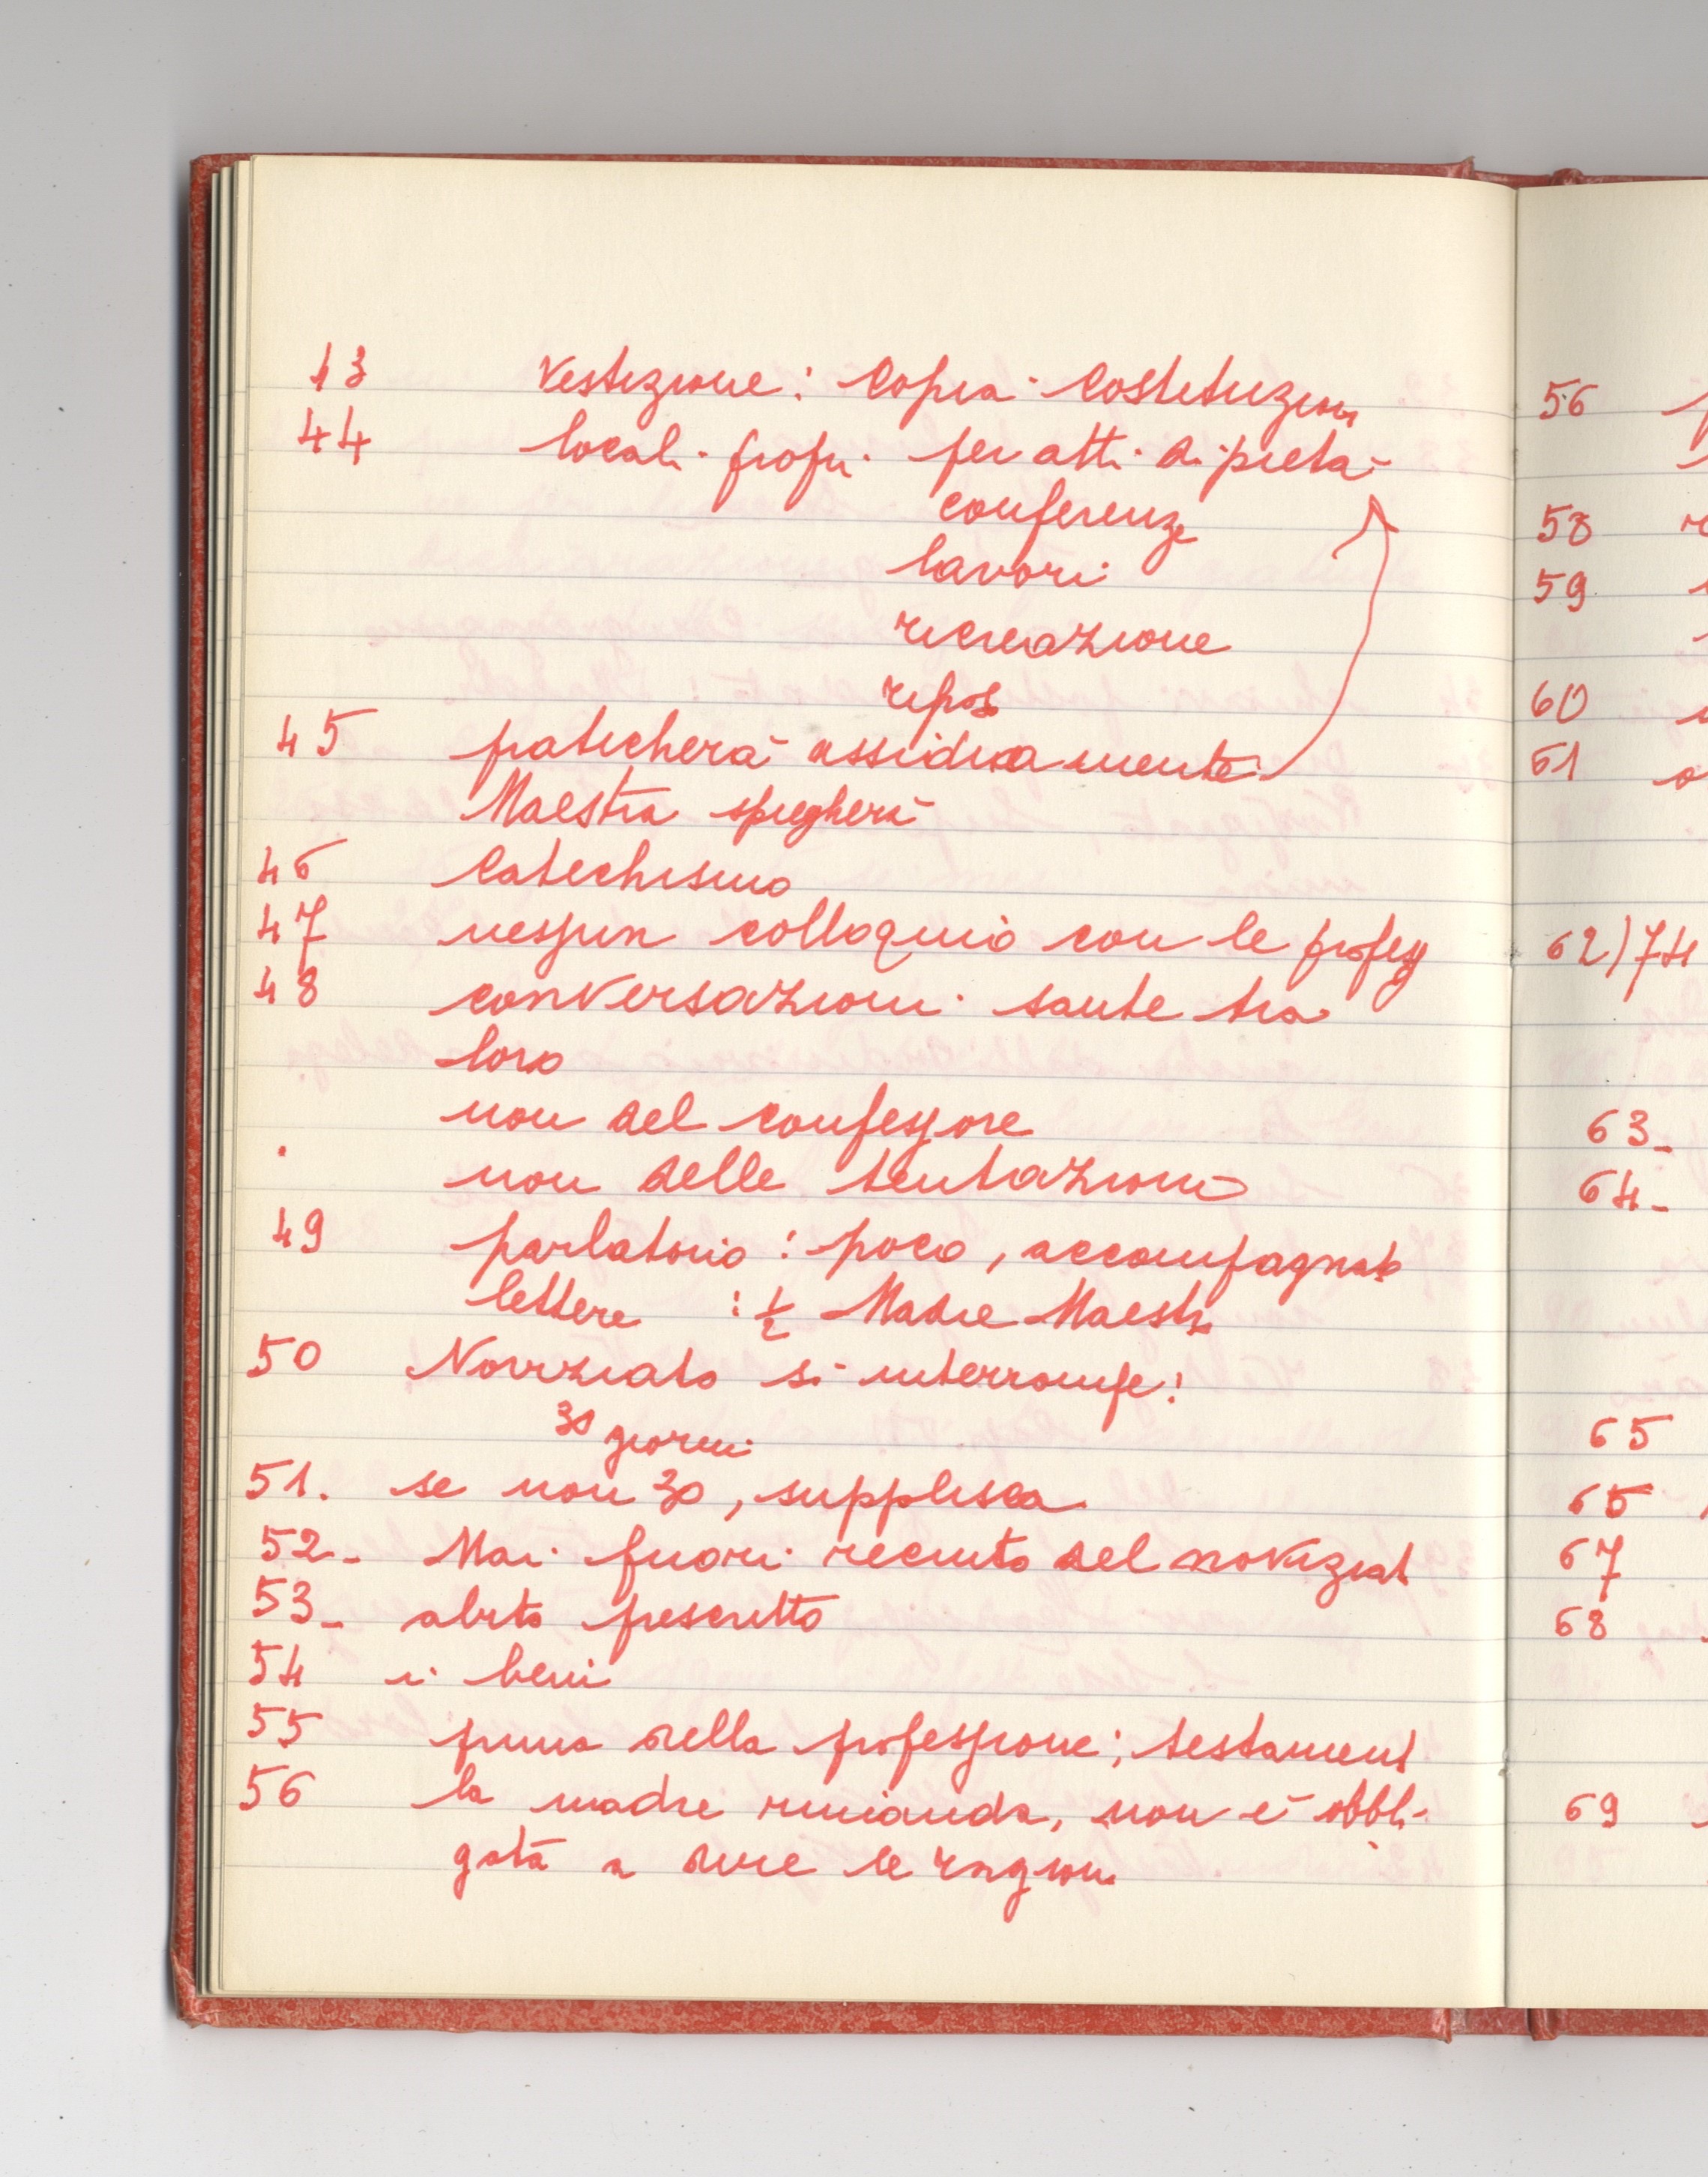 43 Vestizione: Copia Costituzioni
44 locali propri per atti di pietà
conferenze
lavori
ricreazione
riposo
45 praticherà assiduamente
Maestra spiegherà
46 Catechismo
47 nessun colloquio con le profess
48 conversazioni sante tra
loro
non del confessore
non delle tentazioni
49 parlatorio: poco, accompagnato
lettere : 1/2 Madre Maestra
50 Noviziato si interrompe:
30 giorni
51. se non 30, supplisca
52- Mai fuori recinto del noviziat
53- abito prescritto
54 i beni
55 prima della professione; testament
56 la madre rimanda, non è obbli-
gata a dire le ragioni
56
58
59
60
61
62)74
63-
64-
65
66
67
68
69